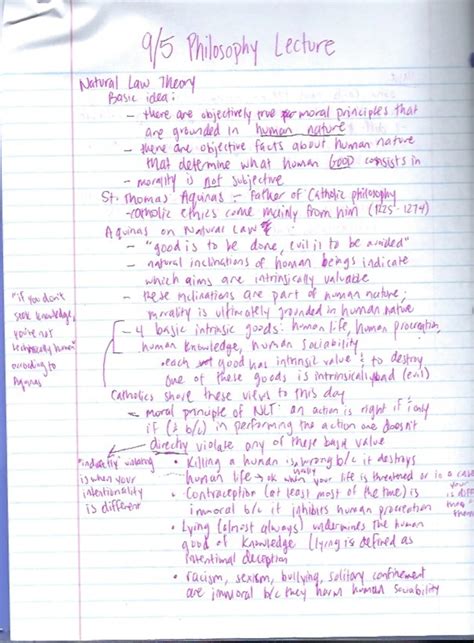 9/5 Philosophy Lecture
Natural Law Theory
Basic idea:
- there are objectively true moral principles that
are grounded in human nature
- there are objective facts about human nature
that determine what human GOOD consists in
- morality is not subjective
St. Thomas Aquinas - Father of Catholic philosophy
- catholic ethics come mainly from him (1225-1274)
Aquinas on Natural Law
- "good is to be done, evil is to be avoided"
- natural inclinations of human beings indicate
which aims are intrinsically valuable
- these inclinations are part of human nature;
morality is ultimately grounded in human nature
- 4 basic intrinsic goods: human life, human procreation,
human knowledge, human sociability
- each good has intrinsic value & to destroy
one of these goods is intrinsically bad (evil)
"if you don't
seek knowledge,
you're not
technically human"
according to
Aquinas
Catholics share these views to this day
- moral principle of NLT: an action is right if & only
if (& b/c) in performing the action one doesn't
directly violate any of these basic value
"indirectly" violating
is when your
intentionality
is different
• Killing a human is usually wrong b/c it destroys
human life → ok when your life is threatened or in a
• Contraception (at least most of the time) is
immoral b/c it inhibits human procreation
• Lying (almost always) undermines the human
good of knowledge (lying is defined as
intentional deception
• racism, sexism, bullying, solitary confinement
are immoral b/c they harm human sociability